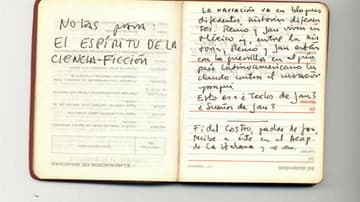 NOTAS para:
EL ESPÍRITU DE LA
CIENCIA-FICCIÓN
La narración va en bloques
diferentes, historias diferen
tes. Remo y Jan viven en
México y, entre la his
toria, Remo y Jan están
con la guerrilla en el
país latinoamericano lu
chando contra el invasor
yanqui
Esto es: ¿Textos de Jan?
¿Sueños de Jan?
Fidel Castro, padre de Jan,
recibe a este en el Aerop.
de La Habana y se